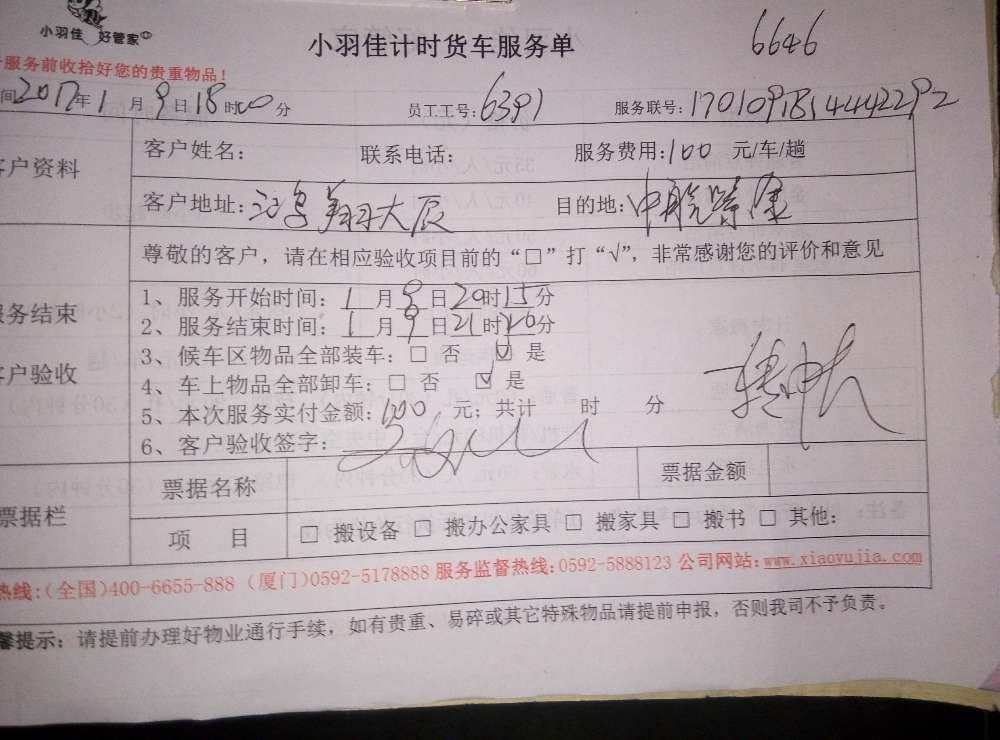 小羽佳 好管家
小羽佳计时货车服务单
6646
服务前收拾好您的贵重物品!
间2017年1月9日18时00分 员工工号:6391 服务联号:
客户资料
客户姓名: 联系电话: 服务费用:100 元/车/趟
客户地址: 翔大辰 目的地:
尊敬的客户，请在相应验收项目前的“□”打“√”，非常感谢您的评价和意见
服务结束
客户验收
1、服务开始时间：1月9日20时15分
2、服务结束时间：1月9日21时20分
3、候车区物品全部装车：□ 否 ☑ 是
4、车上物品全部卸车：□ 否 ☑ 是
5、本次服务实付金额：100 元；共计 时 分
6、客户验收签字：
票据栏
票据名称 票据金额
项 目 □ 搬设备 □ 搬办公家具 □ 搬家具 □ 搬书 □ 其他：
热线:(全国)400-6655-888 (厦门)0592-5178888 服务监督热线:0592-5888123 公司网站:www.xiaoyujia.com
馨提示：请提前办理好物业通行手续，如有贵重、易碎或其它特殊物品请提前申报，否则我司不予负责。